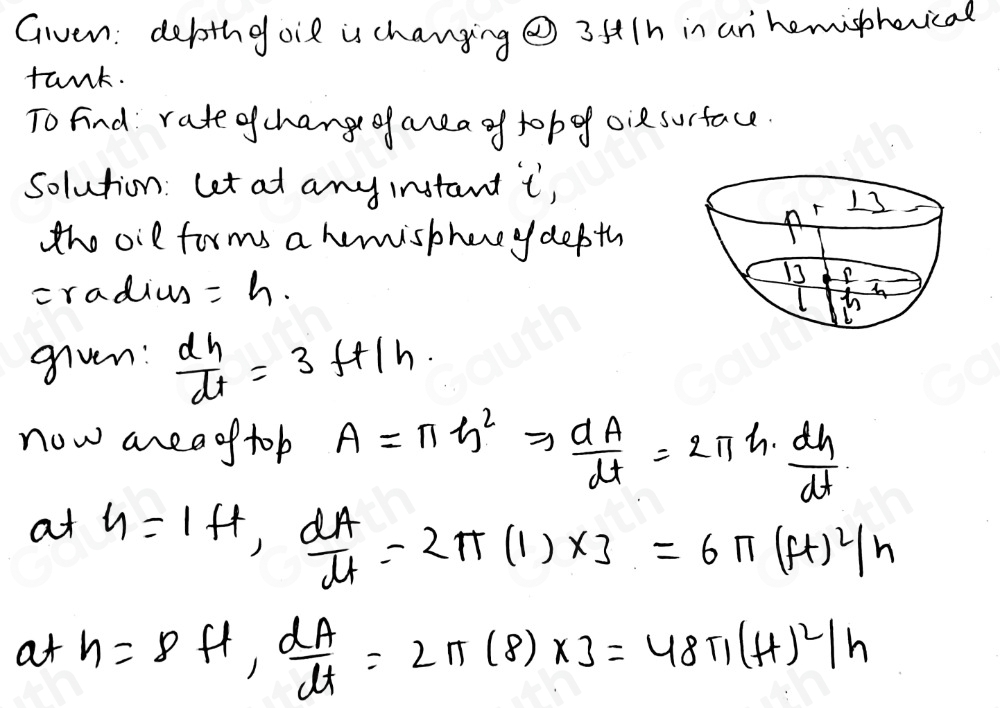 Given: depth of oil is changing @ 3 ft/h in an hemispherical
tank.
To find: rate of change of area of top of oil surface.
Solution: let at any instant 't',
the oil forms a hemisphere of depth
= radius = h.
given: dh/dt = 3 ft/h.
now area of top A = πh² ⇒ dA/dt = 2πh. dh/dt.
at h = 1 ft, dA/dt = 2π (1) × 3 = 6π (ft)²/h
at h = 8 ft, dA/dt = 2π (8) × 3 = 48π (ft)²/h
13
13
h
h
Gauth